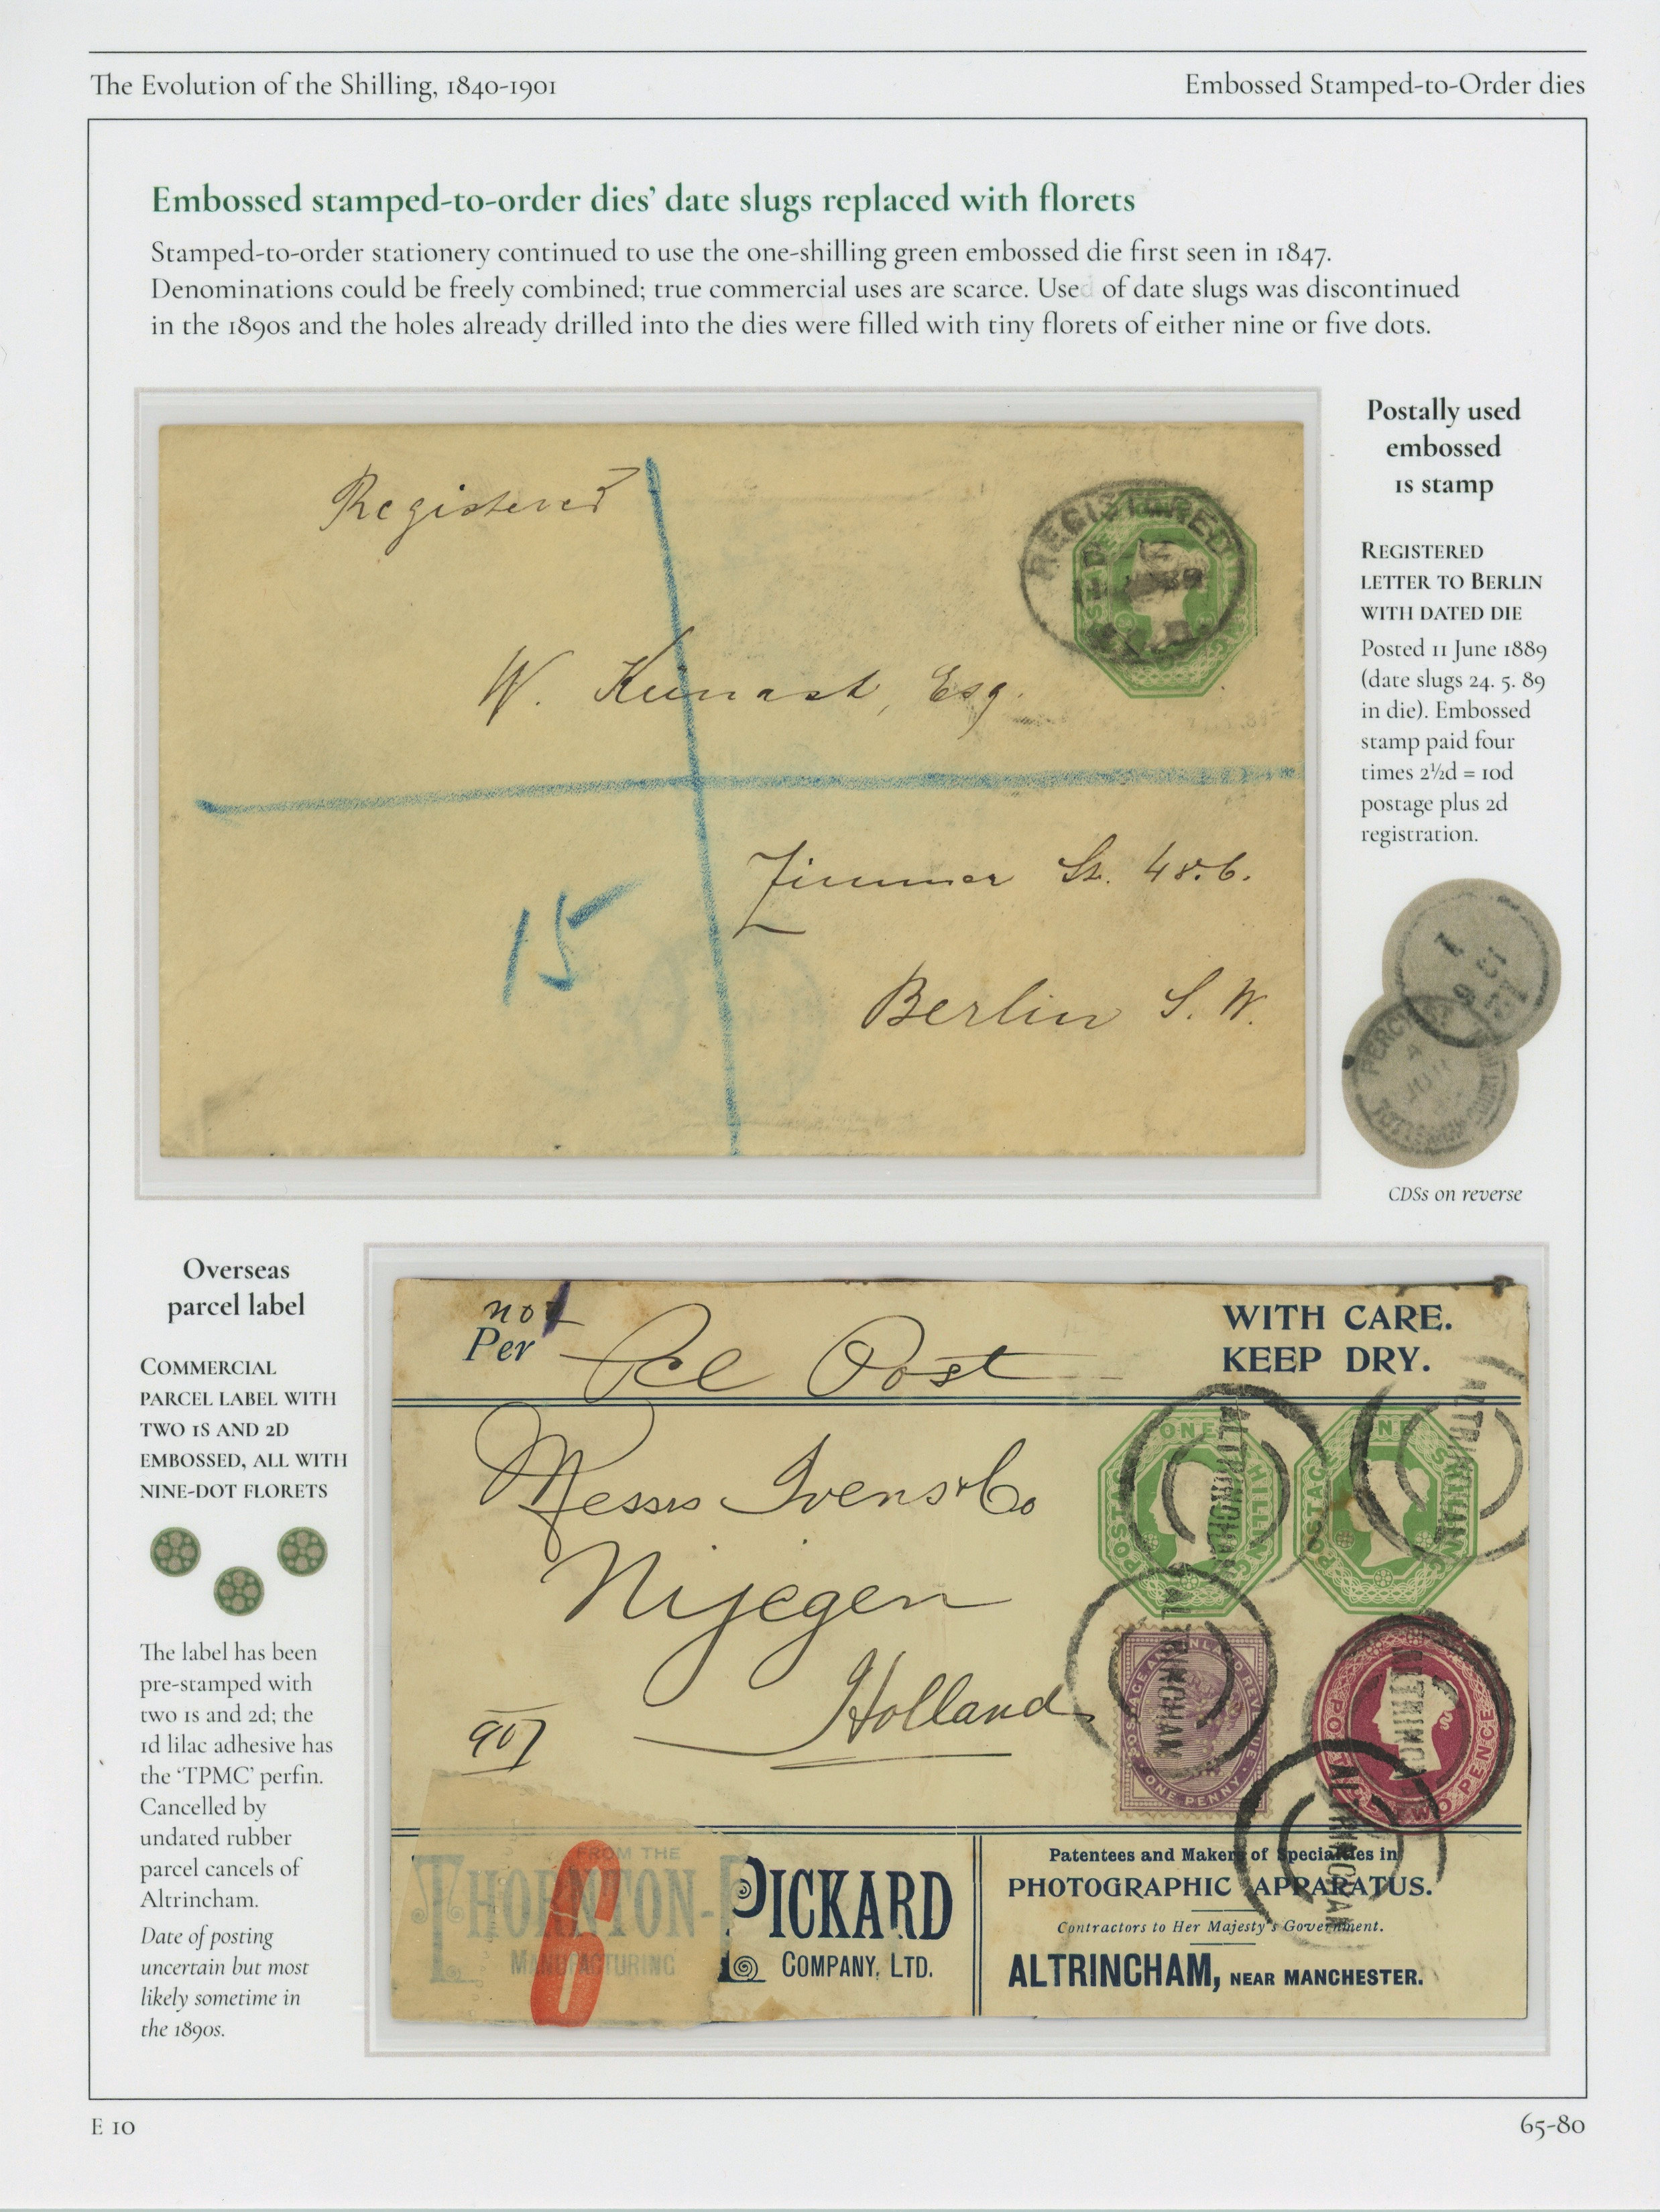 The Evolution of the Shilling, 1840-1901
Embossed Stamped-to-Order dies
Embossed stamped-to-order dies’ date slugs replaced with florets
Stamped-to-order stationery continued to use the one-shilling green embossed die first seen in 1847.
Denominations could be freely combined; true commercial uses are scarce. Used of date slugs was discontinued
in the 1890s and the holes already drilled into the dies were filled with tiny florets of either nine or five dots.
Registered
REGISTERED
W. Kunast, Esq.
Zimmer St. 48.6.
15
Berlin S. W.
Postally used
embossed
1s stamp
REGISTERED
LETTER TO BERLIN
WITH DATED DIE
Posted 11 June 1889
(date slugs 24. 5. 89
in die). Embossed
stamp paid four
times 2½d = 10d
postage plus 2d
registration.
PERCY ST
TOTTENHAM COURT
CDSs on reverse
Overseas
parcel label
COMMERCIAL
PARCEL LABEL WITH
TWO 1S AND 2D
EMBOSSED, ALL WITH
NINE-DOT FLORETS
The label has been
pre-stamped with
two 1s and 2d; the
1d lilac adhesive has
the ‘TPMC’ perfin.
Cancelled by
undated rubber
parcel cancels of
Altrincham.
Date of posting
uncertain but most
likely sometime in
the 1890s.
not
Per Pcl Post
WITH CARE.
KEEP DRY.
Messrs Ivens & Co
Nijegen
Holland
907
POSTAGE ONE SHILLING
POSTAGE ONE SHILLING
ALTRINCHAM
ALTRINCHAM
ALTRINCHAM
ALTRINCHAM
ALTRINCHAM
POSTAGE AND INLAND REVENUE
ONE PENNY
POSTAGE TWO PENCE
FROM THE
THORNTON-PICKARD
MANUFACTURING COMPANY, LTD.
6
Patentees and Makers of Specialties in
PHOTOGRAPHIC APPARATUS.
Contractors to Her Majesty's Government.
ALTRINCHAM, NEAR MANCHESTER.
E 10
65-80